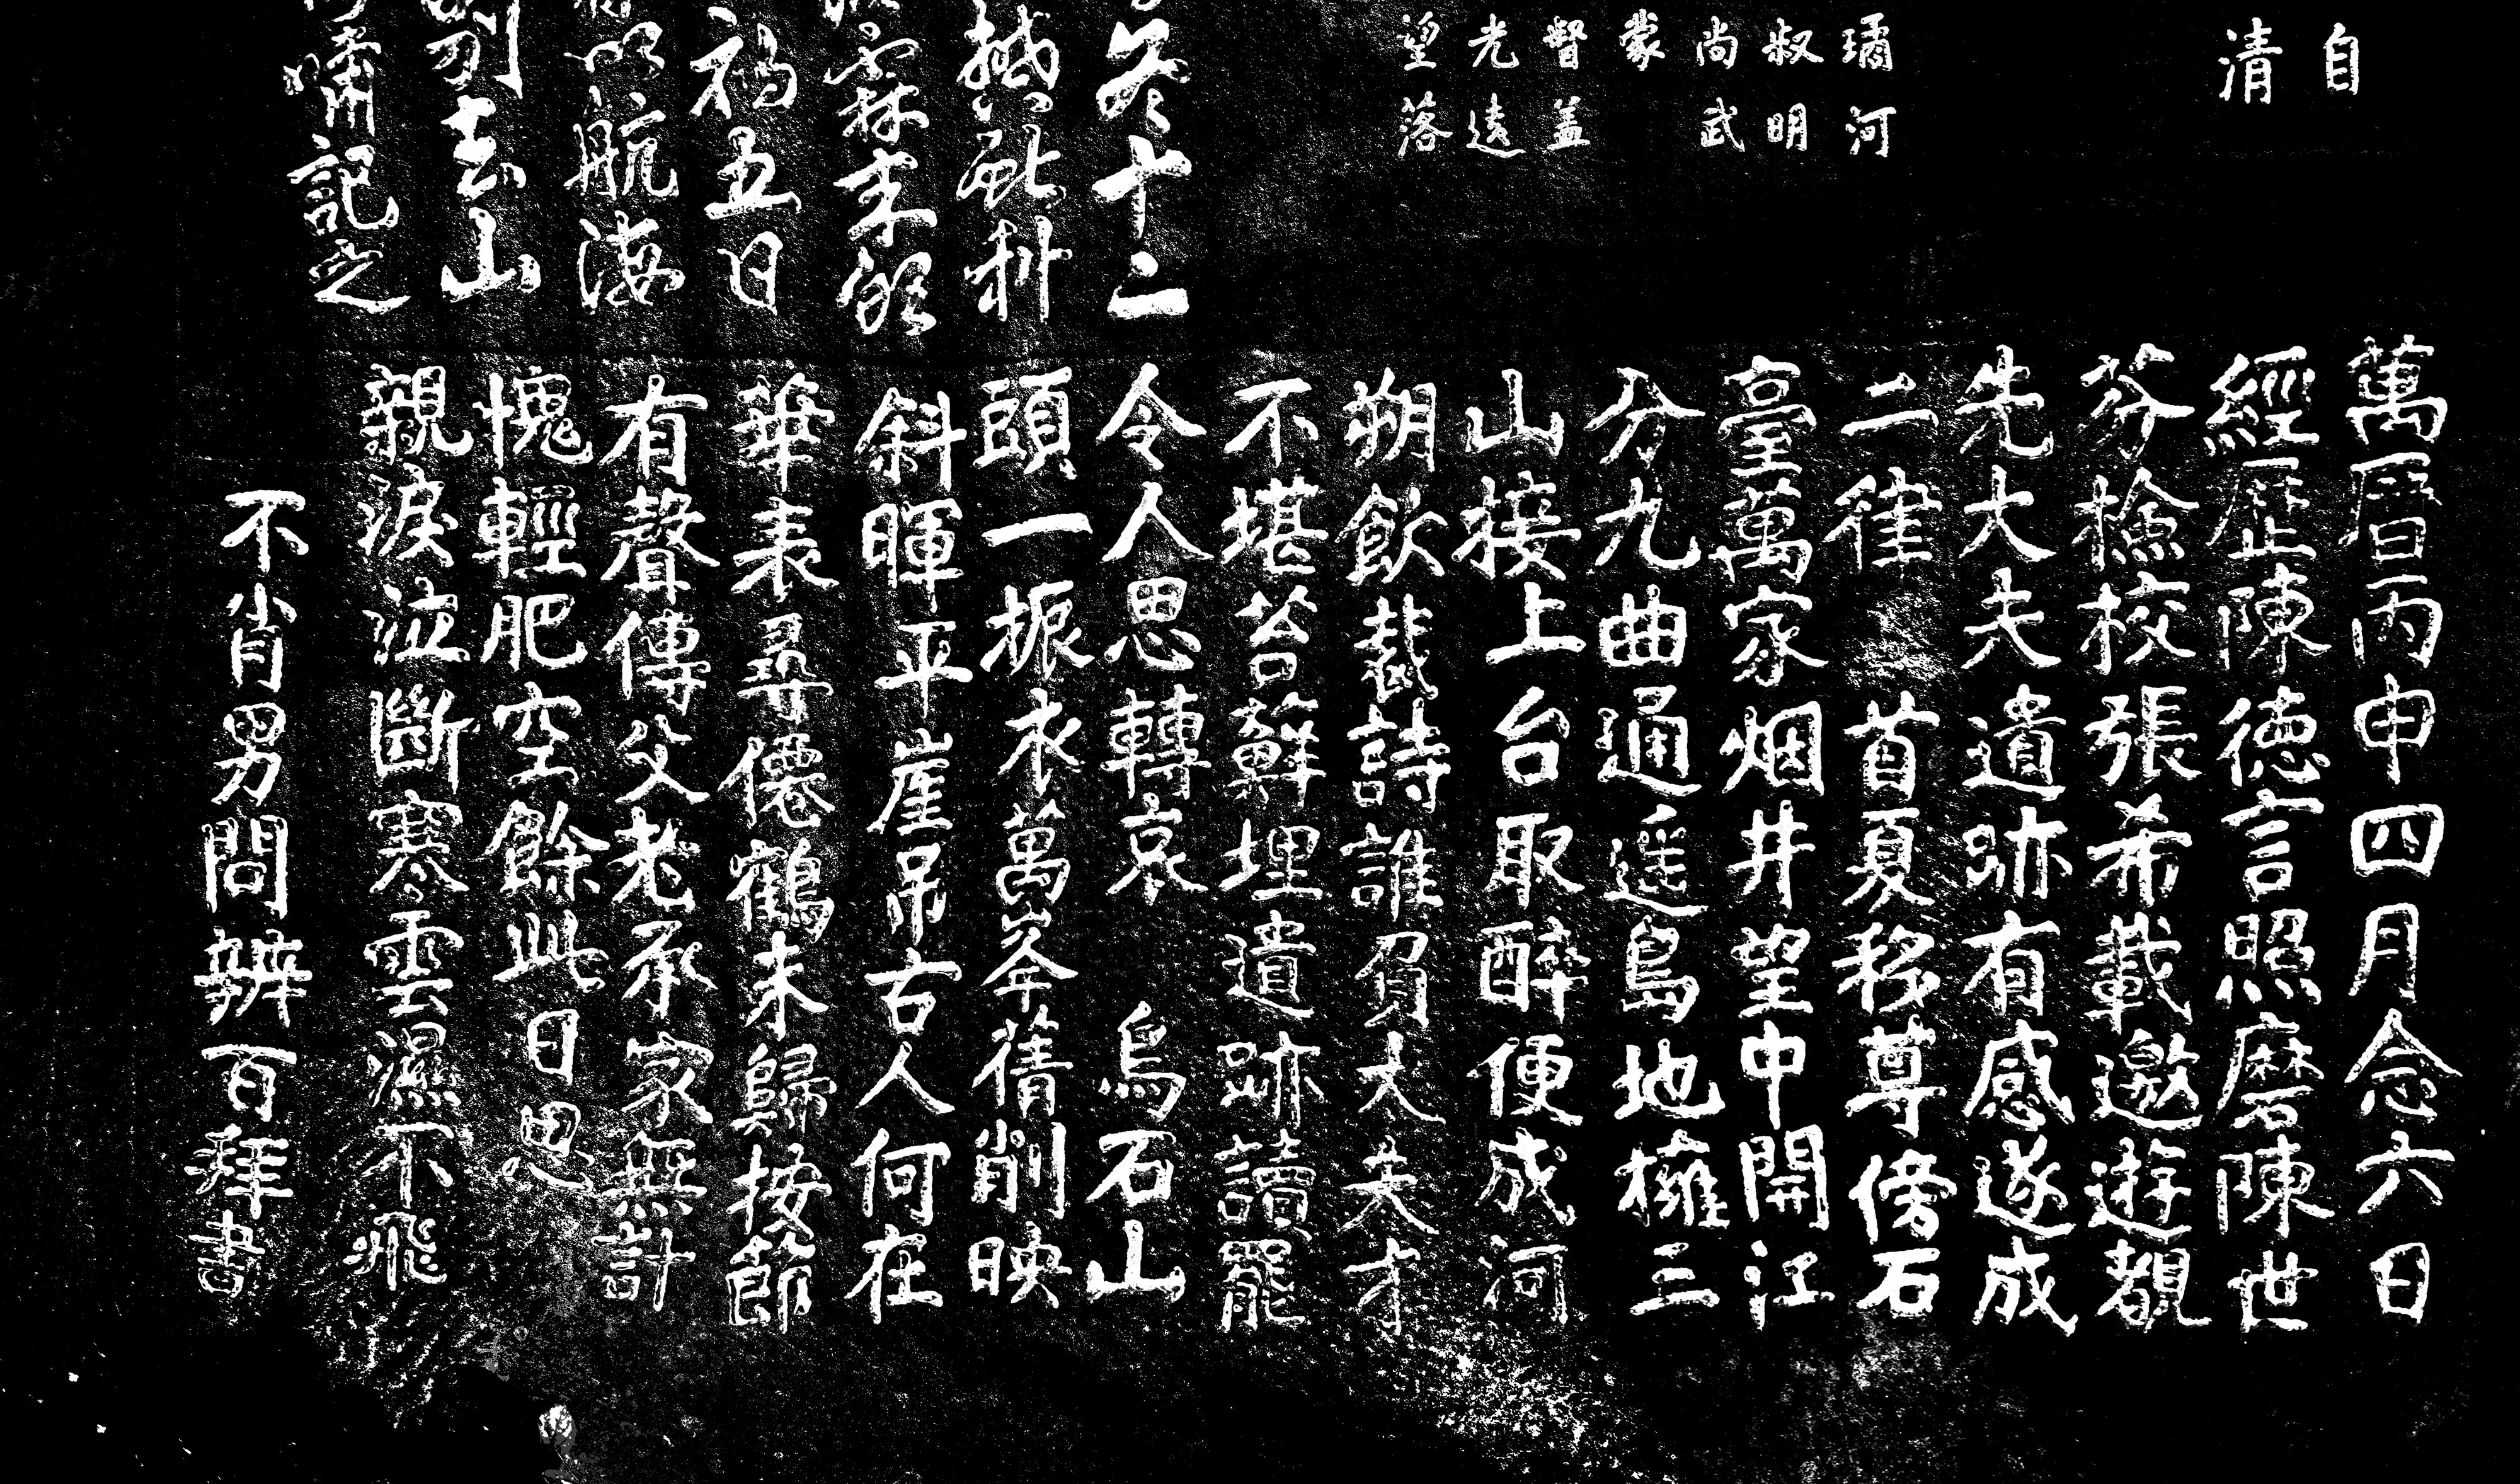 自
清
璚河
叔明
尚武
蒙
督盖
光遠
望落
冬十二
科
霖
五日
航海
别去山
嘯記之
萬曆丙申四月念六日
經歷陳德言照磨陳世
芬檢校張希載邀遊覩
先大夫遺跡有感遂成
二律 首夏移尊傍石
臺萬家烟井望中開江
分九曲通遥島地擁三
山接上台取醉便成河
朔飲裁詩誰負大夫才
不堪苔蘚埋遺跡讀罷
令人思轉哀 烏石山
頭一振衣萬峯蒨削映
斜暉平崖吊古人何在
華表尋僊鶴未歸按節
有聲傳父老承家無計
愧輕肥空餘此日思
親淚泣斷寒雲濕不飛
不肖男問辨百拜書